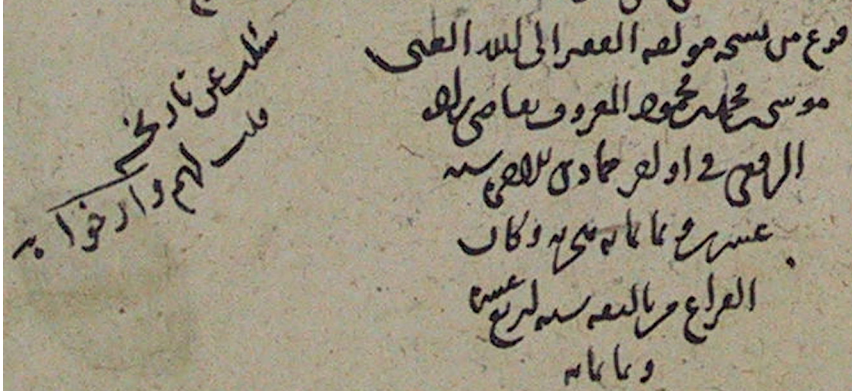 فرغ من نسخه مولفه الفقير الى الله الغني
موسى بن محمد بن محمود المعروف بقاضي زاده
الرومي في اواخر جمادى الاخرى سنه
وثمانمائه هجريه وكان
الفراغ من تاليفه سنه اربع عشره
وثمانمائه
سئلت عن تاريخه
قلت لهم وارخوا به